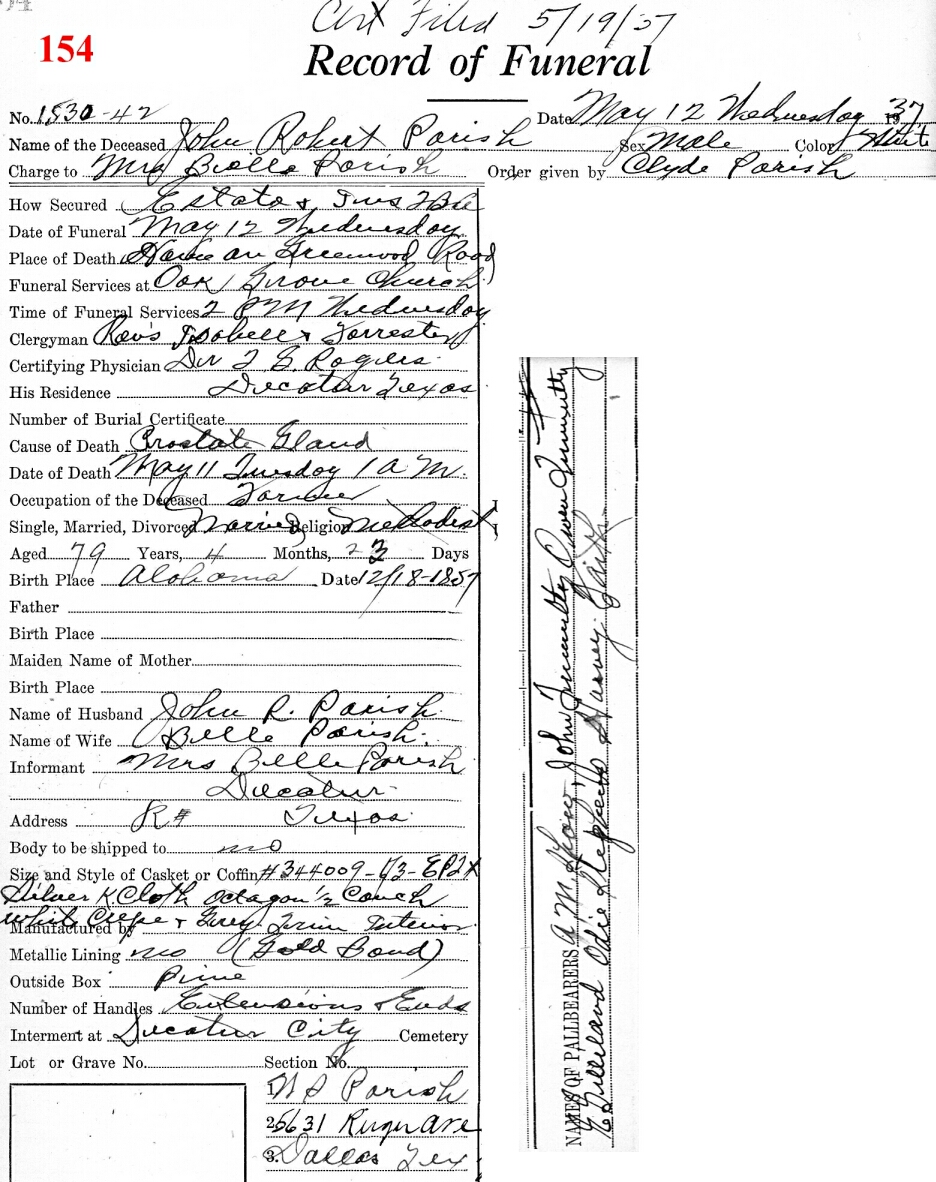 Cert Filed 5/19/37
154
Record of Funeral
No. 1530-42 Date May 12 Wednesday 1937
Name of the Deceased John Robert Parish Sex Male Color White
Charge to Mrs Belle Parish Order given by Clyde Parish
How Secured Estate &
Date of Funeral May 12 Wednesday
Place of Death Home on Greenwood Road
Funeral Services at Oak Grove Church
Time of Funeral Services 2 PM Wednesday
Clergyman Rev's Isabell & Forrester
Certifying Physician Dr Rogers
His Residence Decatur Texas
Number of Burial Certificate
Cause of Death Prostate Gland
Date of Death May 11 Tuesday 1 A M.
Occupation of the Deceased Farmer
Single, Married, Divorced Married Religion Methodist
Aged 79 Years, 4 Months, 23 Days
Birth Place Alabama Date 12/18-1857
Father
Birth Place
Maiden Name of Mother
Birth Place
Name of Husband John R. Parish
Name of Wife Belle Parish.
Informant Mrs Belle Parish
Decatur
Address R# Texas
Body to be shipped to no
Size and Style of Casket or Coffin #344009-6/3-EP2X
Silver K. Cloth Octagon 1/2 Couch
White Crepe & Grey Trim Interior
Manufactured by
Metallic Lining no (Gold Bond)
Outside Box Pine
Number of Handles Extensions & Ends
Interment at Decatur City Cemetery
Lot or Grave No. Section No.
1. Parish
2. 5631 Ave
3. Dallas Tex
NAMES OF PALLBEARERS A. M. John Owen
Gilliland Odie Stephens Harvey